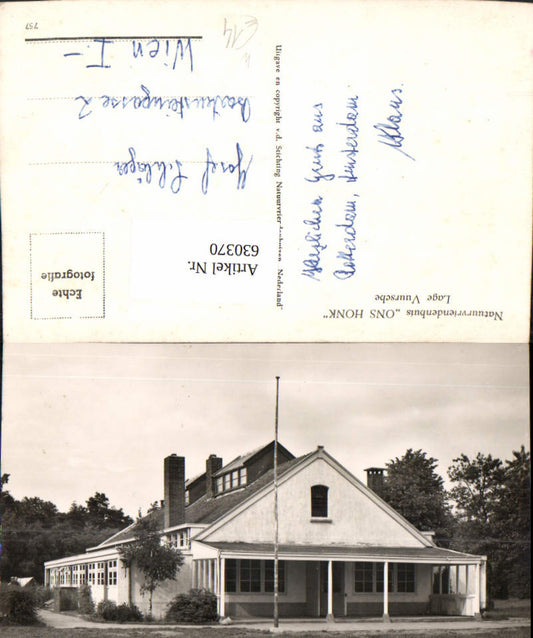 Natuurvriendenhuis „ONS HONK"
Lage Vuursche
Herzlichen Gruß aus
Rotterdam, Amsterdam
Klaus.
Uitgave en copyright v.d. Stichting Natuurvrienden Nederland'
Echte
fotografie
Artikel Nr.
630370
Josef
Wien I.-
757